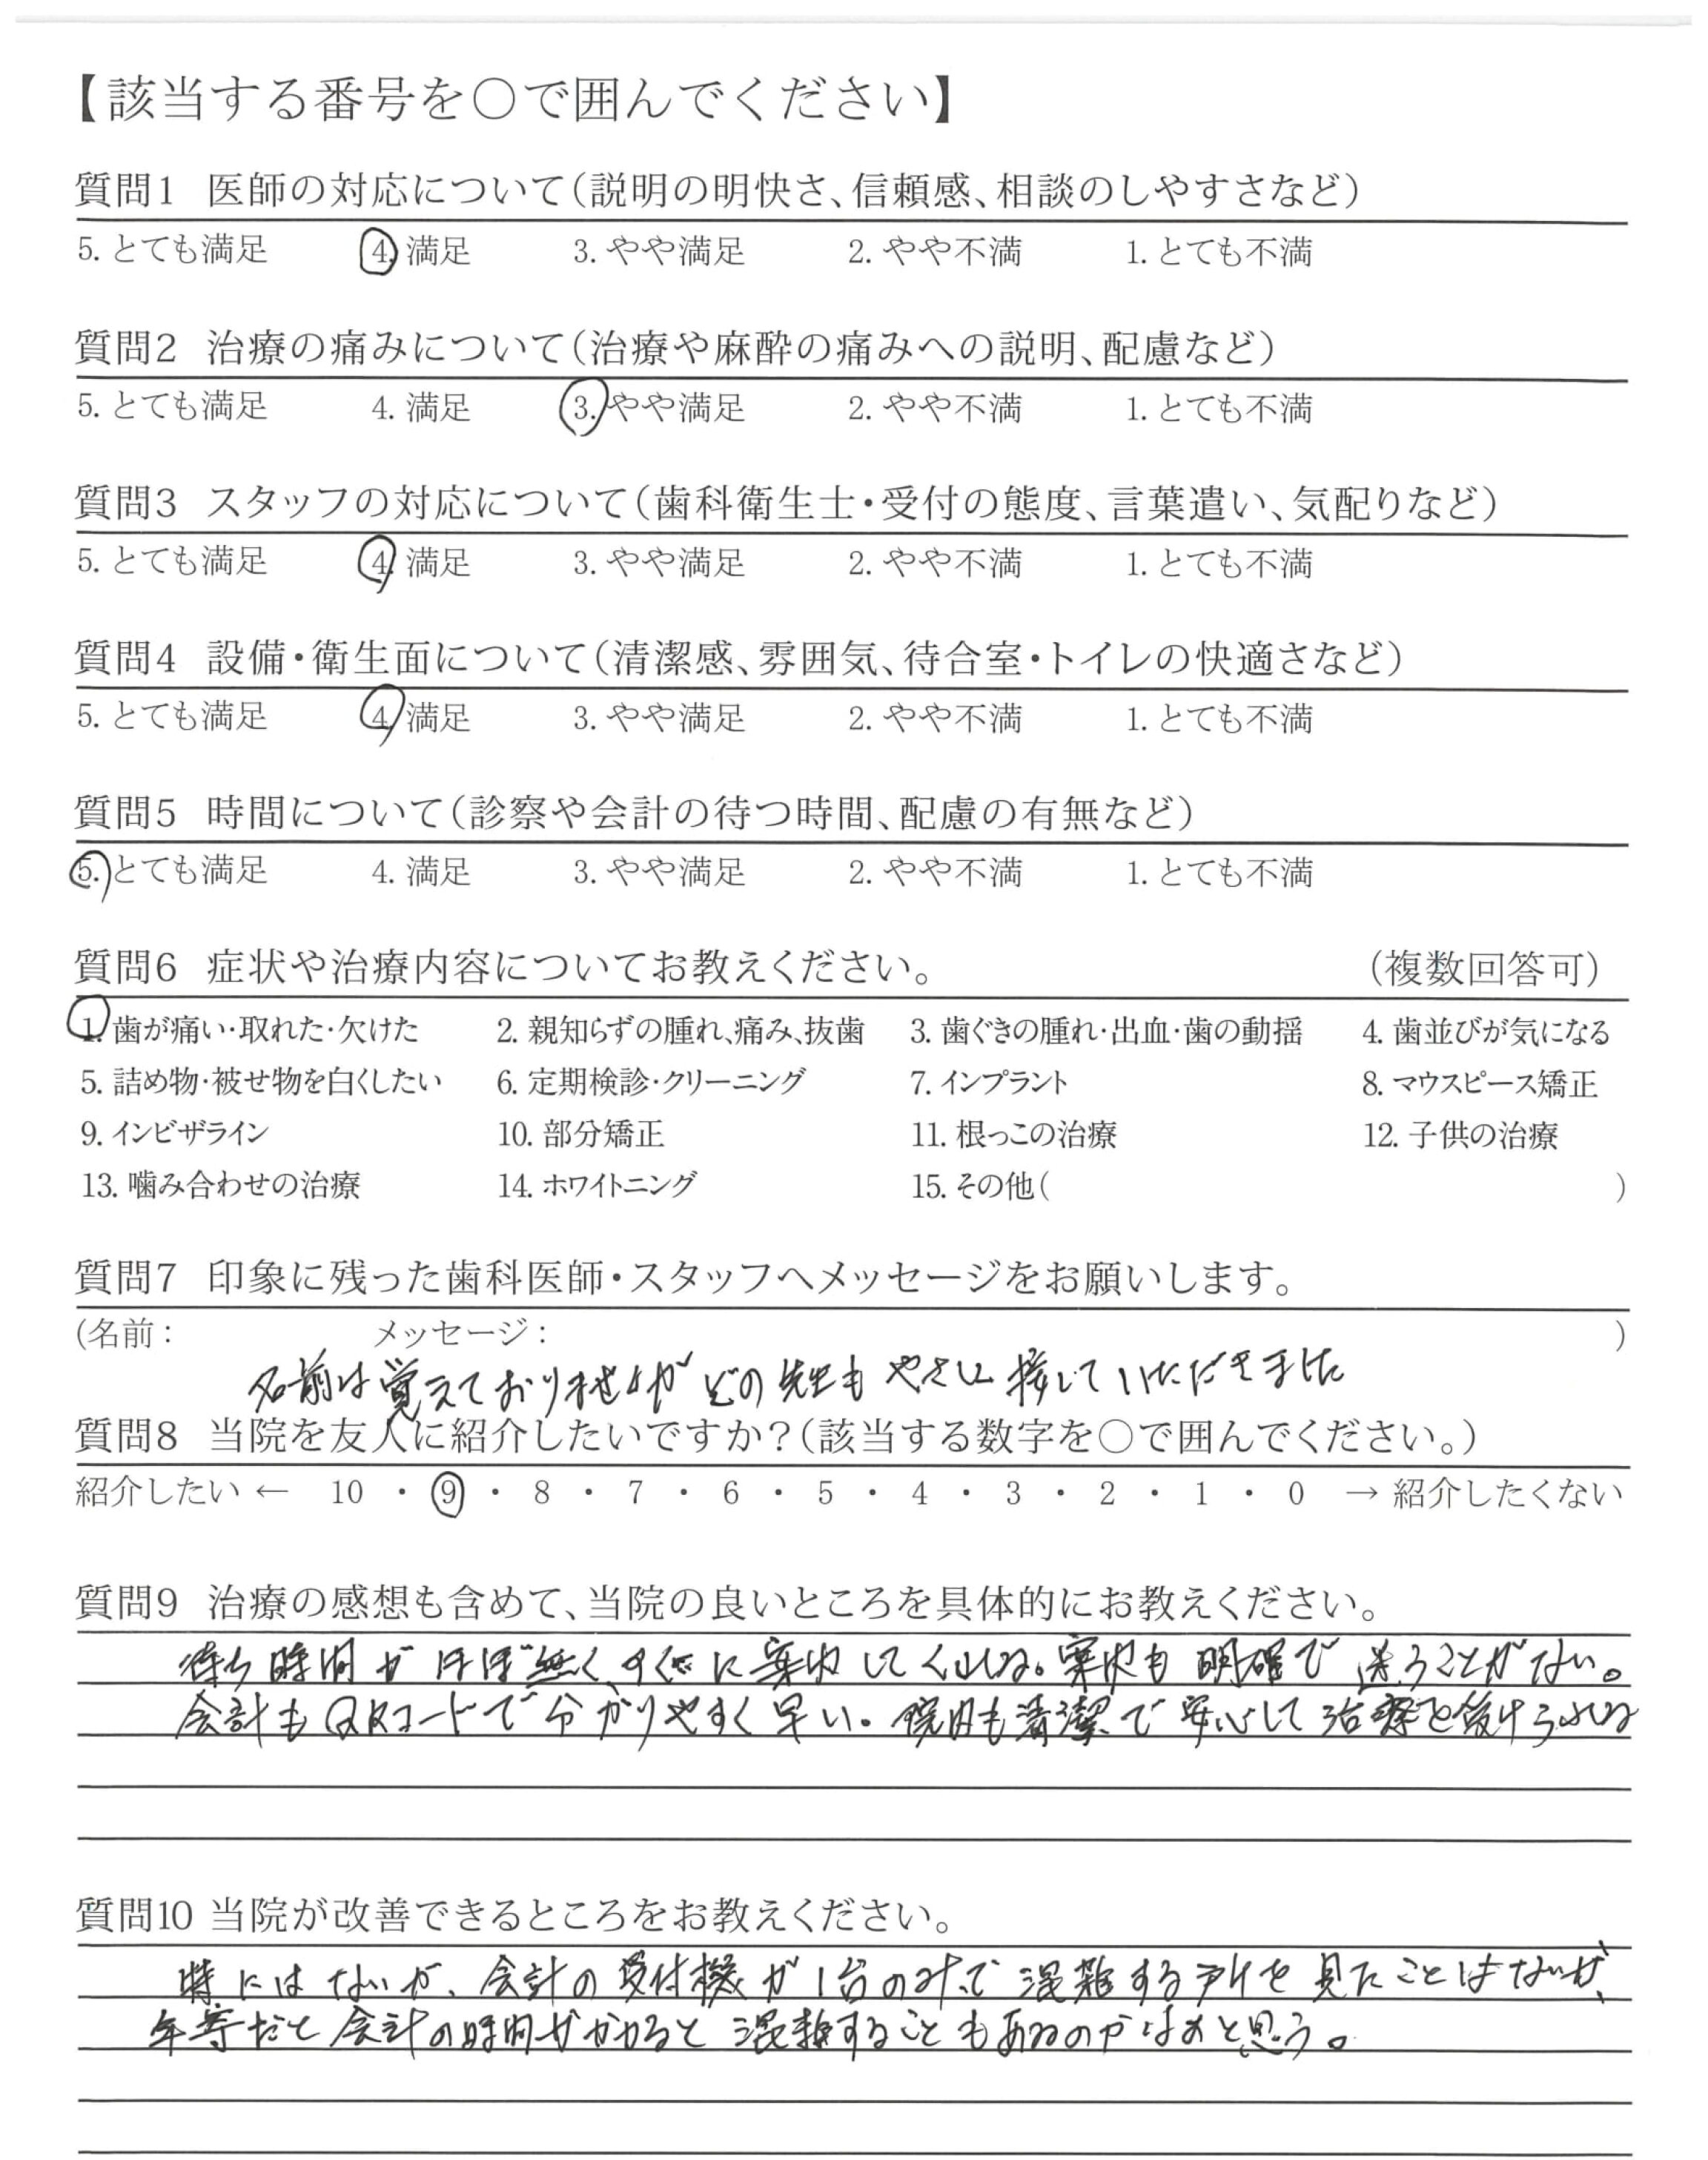 【該当する番号を○で囲んでください】
質問1 医師の対応について(説明の明快さ、信頼感、相談のしやすさなど)
5. とても満足 4. 満足 3. やや満足 2. やや不満 1. とても不満
質問2 治療の痛みについて(治療や麻酔の痛みへの説明、配慮など)
5. とても満足 4. 満足 3. やや満足 2. やや不満 1. とても不満
質問3 スタッフの対応について(歯科衛生士・受付の態度、言葉遣い、気配りなど)
5. とても満足 4. 満足 3. やや満足 2. やや不満 1. とても不満
質問4 設備・衛生面について(清潔感、雰囲気、待合室・トイレの快適さなど)
5. とても満足 4. 満足 3. やや満足 2. やや不満 1. とても不満
質問5 時間について(診察や会計の待つ時間、配慮の有無など)
5. とても満足 4. 満足 3. やや満足 2. やや不満 1. とても不満
質問6 症状や治療内容についてお教えください。 (複数回答可)
1. 歯が痛い・取れた・欠けた 2. 親知らずの腫れ、痛み、抜歯 3. 歯ぐきの腫れ・出血・歯の動揺 4. 歯並びが気になる
5. 詰め物・被せ物を白くしたい 6. 定期検診・クリーニング 7. インプラント 8. マウスピース矯正
9. インビザライン 10. 部分矯正 11. 根っこの治療 12. 子供の治療
13. 噛み合わせの治療 14. ホワイトニング 15. その他( )
質問7 印象に残った歯科医師・スタッフへメッセージをお願いします。
(名前: メッセージ: )
名前は覚えておりませんが どの先生も やさしく 接していただきました
質問8 当院を友人に紹介したいですか?(該当する数字を○で囲んでください。)
紹介したい ← 10 ・ 9 ・ 8 ・ 7 ・ 6 ・ 5 ・ 4 ・ 3 ・ 2 ・ 1 ・ 0 → 紹介したくない
質問9 治療の感想も含めて、当院の良いところを具体的にお教えください。
待ち時間が ほぼ無く すぐに 案内してくれる。案内も 明確で 迷うことがない。
会計もQRコードで 分かりやすく 早い。院内も清潔で 安心して 治療を受けられる
質問10 当院が改善できるところをお教えください。
特にはないが、会計の 受付機が1台のみで 混雑する所を 見たことはないが、
年寄だと 会計の時間がかかると 混雑することもあるのかなぁと思う。